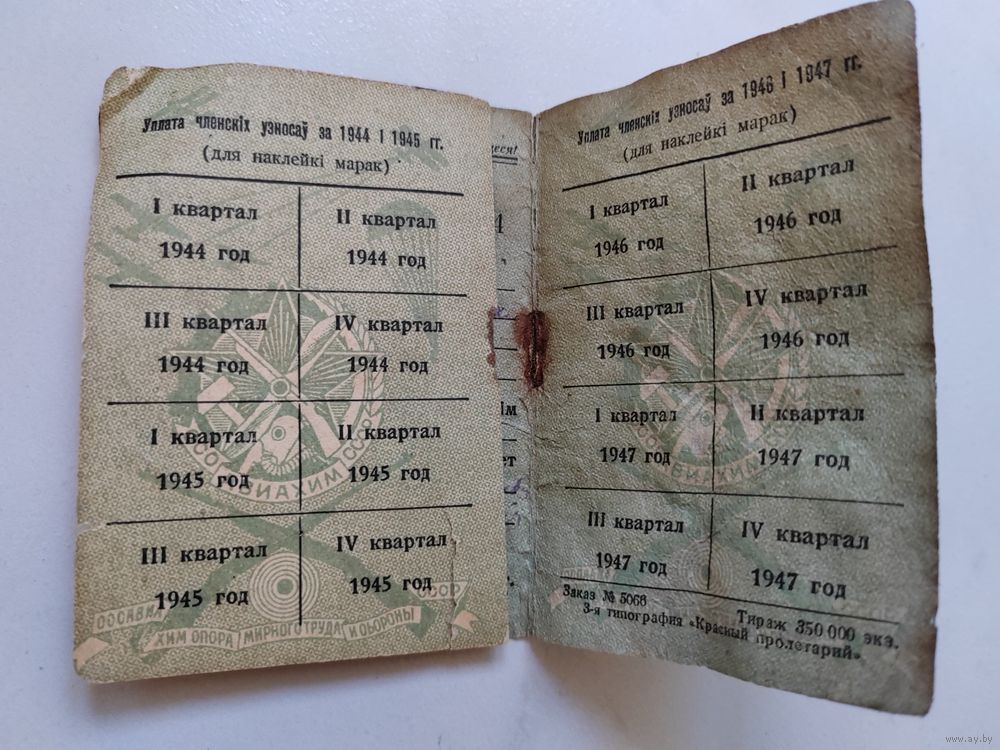 Уплата членскіх узносаў за 1944 і 1945 гг.
(для наклейкі марак)
I квартал
1944 год
II квартал
1944 год
III квартал
1944 год
IV квартал
1944 год
I квартал
1945 год
II квартал
1945 год
III квартал
1945 год
IV квартал
1945 год
ОСОАВИАХИМ СССР
ОСОАВИА
ХИМ ОПОРА МИРНОГО ТРУДА И ОБОРОНЫ
СССР
цеся!
4
ім
ет
Уплата членскіх узносаў за 1946 і 1947 гг.
(для наклейкі марак)
I квартал
1946 год
II квартал
1946 год
III квартал
1946 год
IV квартал
1946 год
I квартал
1947 год
II квартал
1947 год
III квартал
1947 год
IV квартал
1947 год
Заказ № 5066 Тираж 350 000 экз.
3-я типография «Красный пролетарий»
www.ay.by